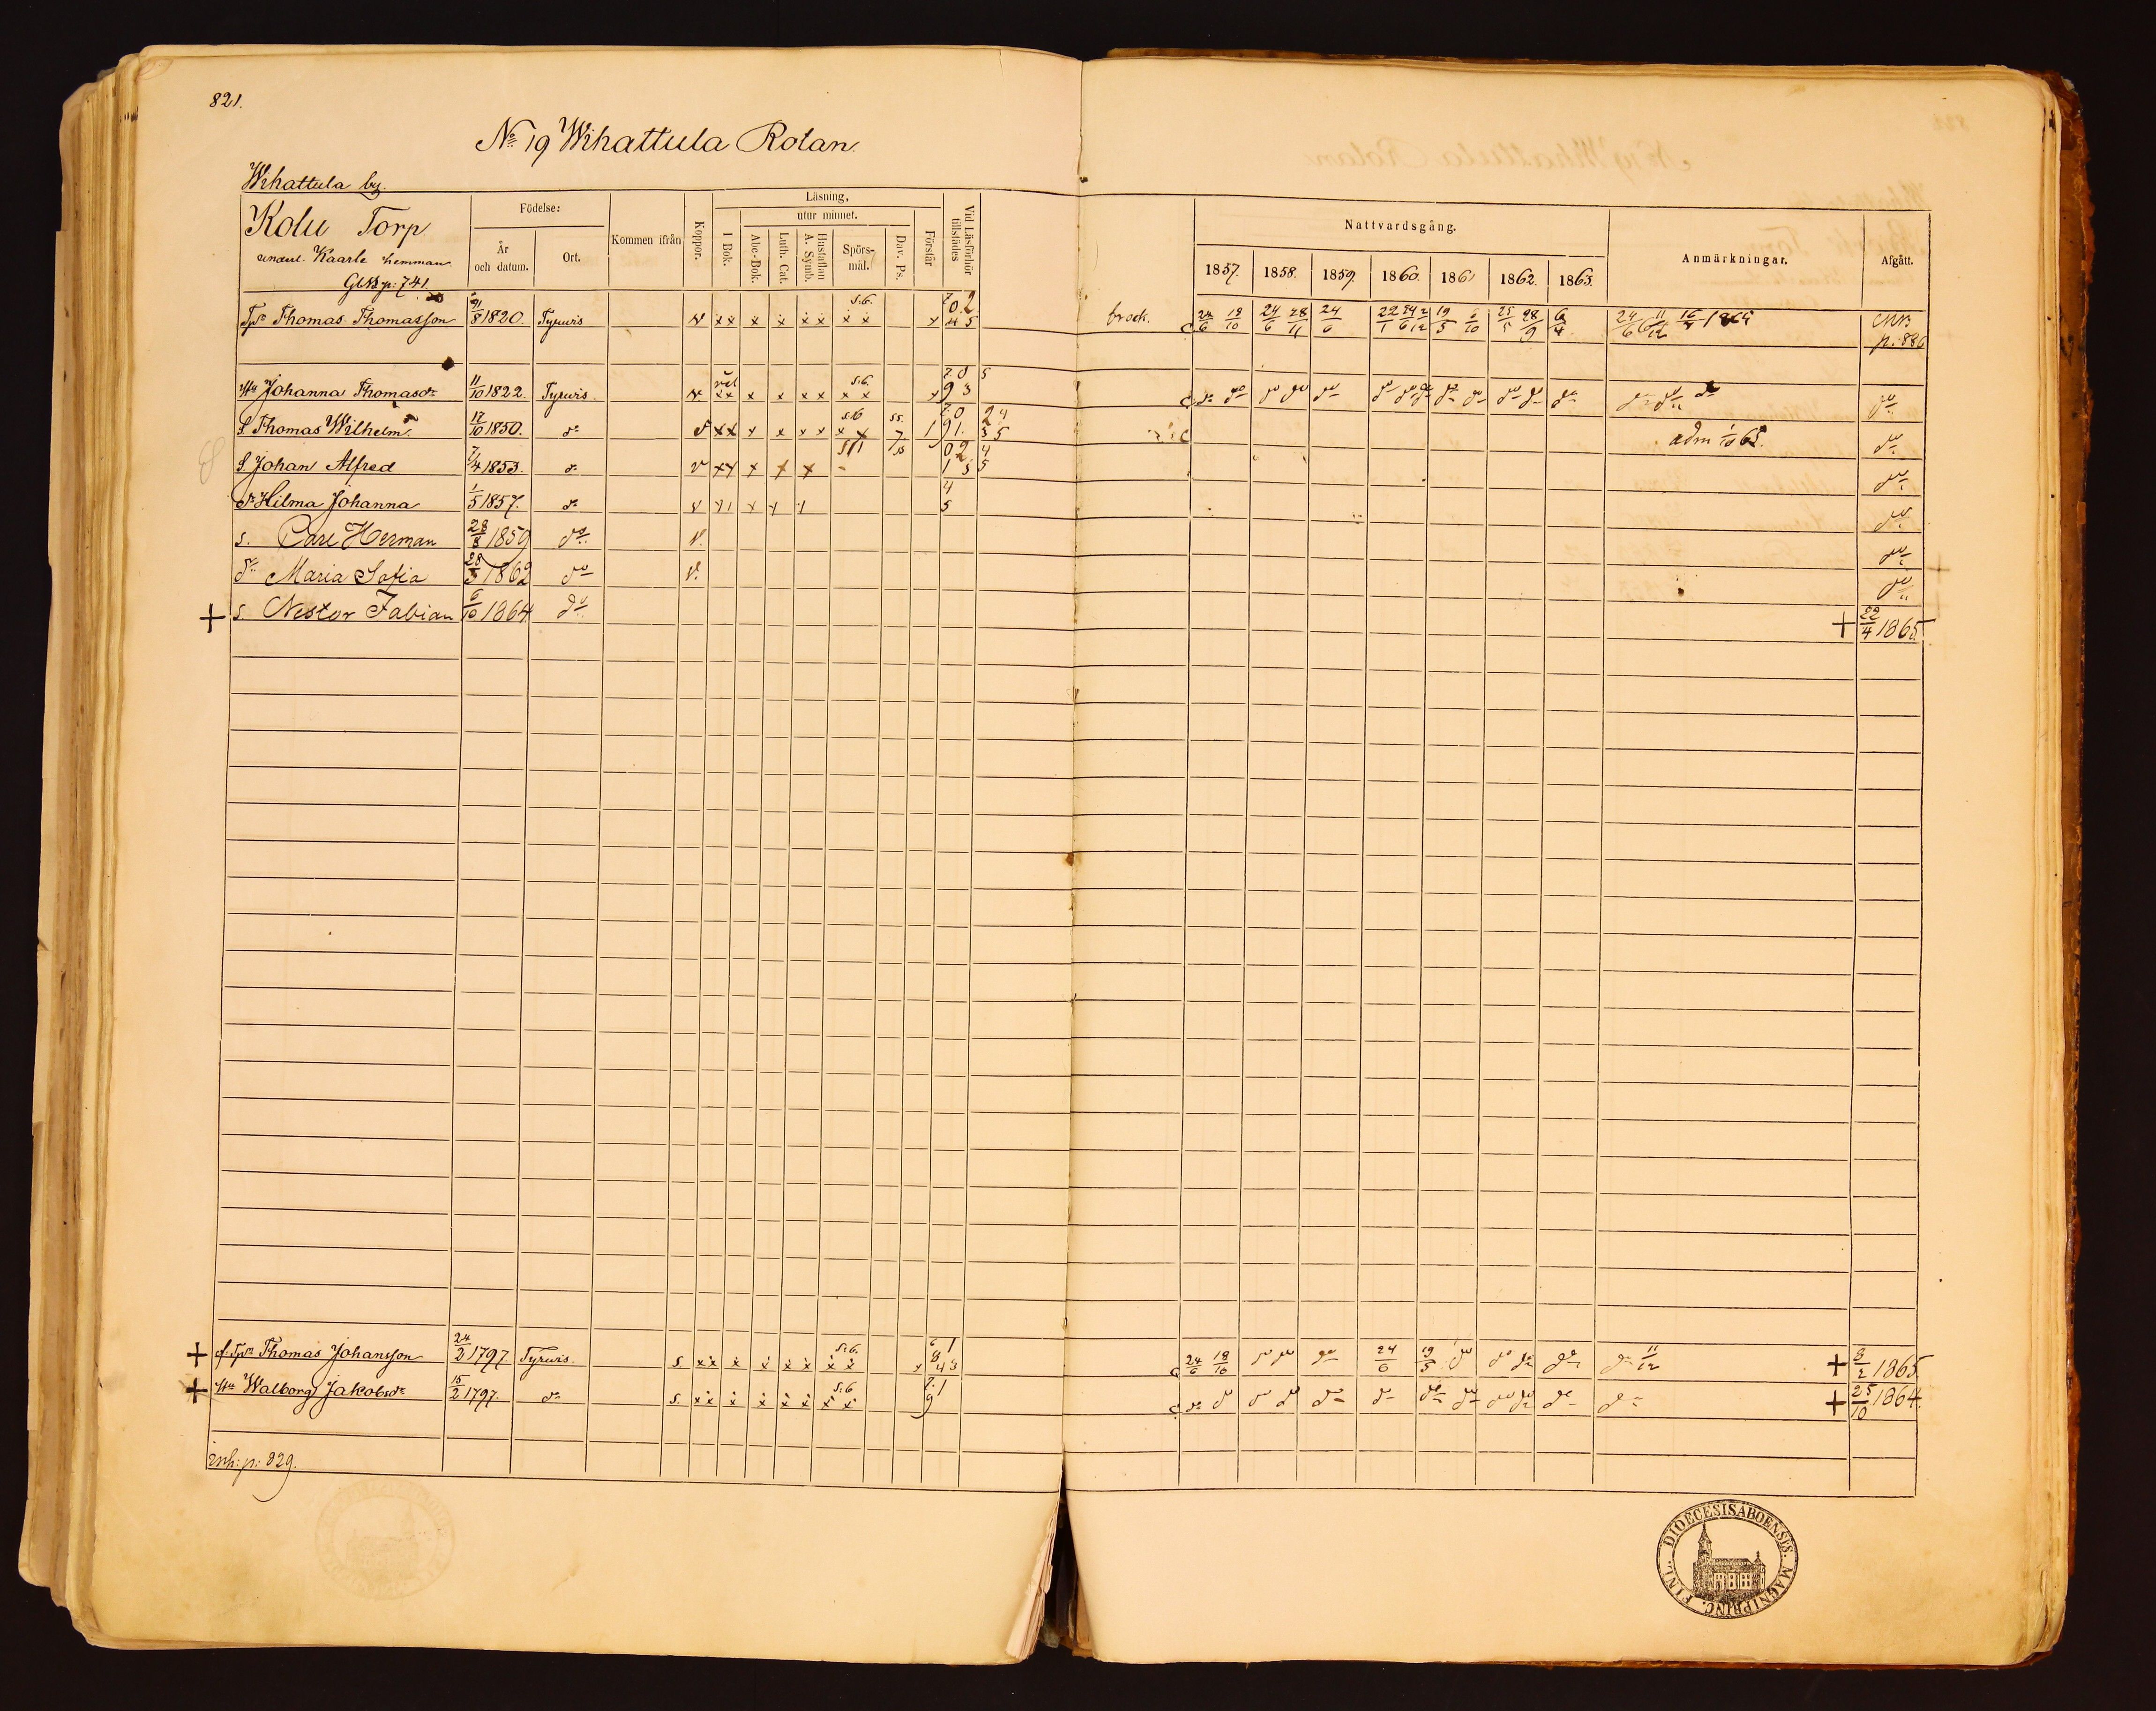 821.
No 19 Wihattula Rotan.
Wihattula by.
Kolu Torp
underl. Kaarle hemman
GlKB p: 741.
Födelse:
År och datum.
Ort.
Kommen ifrån
Koppor.
Läsning,
utur minnet.
I Bok.
Abc-Bok.
Luth. Cat.
Hustaflan A. Symb.
Spörs-mål.
Dav. Ps.
Förstår
Vid Läsförhör tillstädes
Nattvardsgång.
1857. 1858. 1859. 1860. 1861 1862. 1863.
Anmärkningar.
Afgått.
Tpr Thomas Thomasson 21/8 1820. Tyrwis v xx x x xx S:6. xx x
brock. 24/6 18/10 24/6 28/11 24/6 22/1 24/6 2/12 19/5 6/10 25/5 28/9 6/4 24/6 11/12 1864 p. 886
Hu Johanna Thomasdr 11/10 1822. Tyrwis. v väl xx x x xx S:6. xx x 93 do do do do do
S. Thomas Wilhelm 17/10 1850. do v xx x x xx S:6 1 91. adm 1/10 65. do
S. Johan Alfred 7/4 1853. do v xx x x x do
dr Hilma Johanna 1/5 1857. do v do
s. Carl Herman 28/8 1859 do v. do
dr Maria Sofia 28/5 1862 do v. do
+ s. Nestor Fabian 6/10 1864 do + 22/4 1865
+ f. Tpr Thomas Johansson 24/2 1797. Tyrwis. s xx x x xx S:6. xx x 24/6 18/10 do do do 24/6 19/5 do do do do do 11/12 + 3/2 1865
+ Hu Walborg Jakobsdr 15/2 1797. do s. xx x x xx S:6 xx do do do do do do do do do do do do + 25/10 1864.
inh: p: 829.
DIOECESIS ABOENSIS. MAGNI PRINC. FINL.